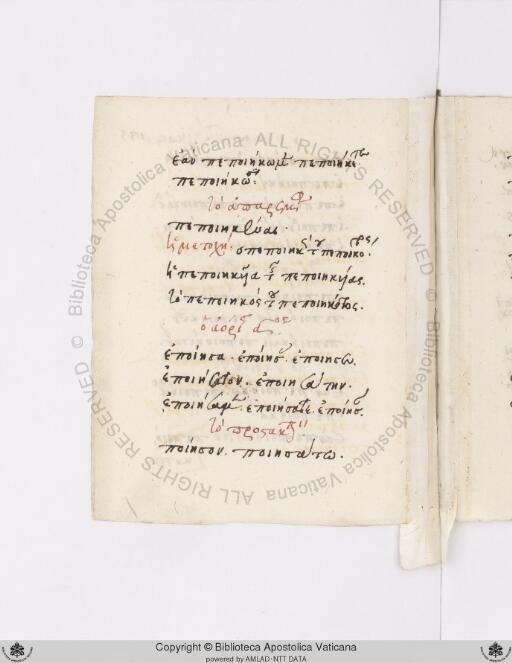 ἐὰν πεποιήκωμεν πεποιήκητε
πεποιήκωσι:
τὸ ἀπαρέμφατον
πεποιηκέναι
ἡ μετοχή· ὁ πεποιηκὼς τοῦ πεποιηκότος·
ἡ πεποιηκυῖα τῆς πεποιηκυίας.
τὸ πεποιηκός τοῦ πεποιηκότος.
ὁ ἀόριστος
ἐποίησα. ἐποίησας. ἐποίησεν.
ἐποιήσατον. ἐποιησάτην.
ἐποιήσαμεν. ἐποιήσατε. ἐποίησαν.
τὸ προστακτικόν
ποίησον. ποιησάτω.
© Biblioteca Apostolica Vaticana ALL RIGHTS RESERVED
© Biblioteca Apostolica Vaticana ALL RIGHTS RESERVED
Copyright © Biblioteca Apostolica Vaticana
powered by AMLAD-NTT DATA